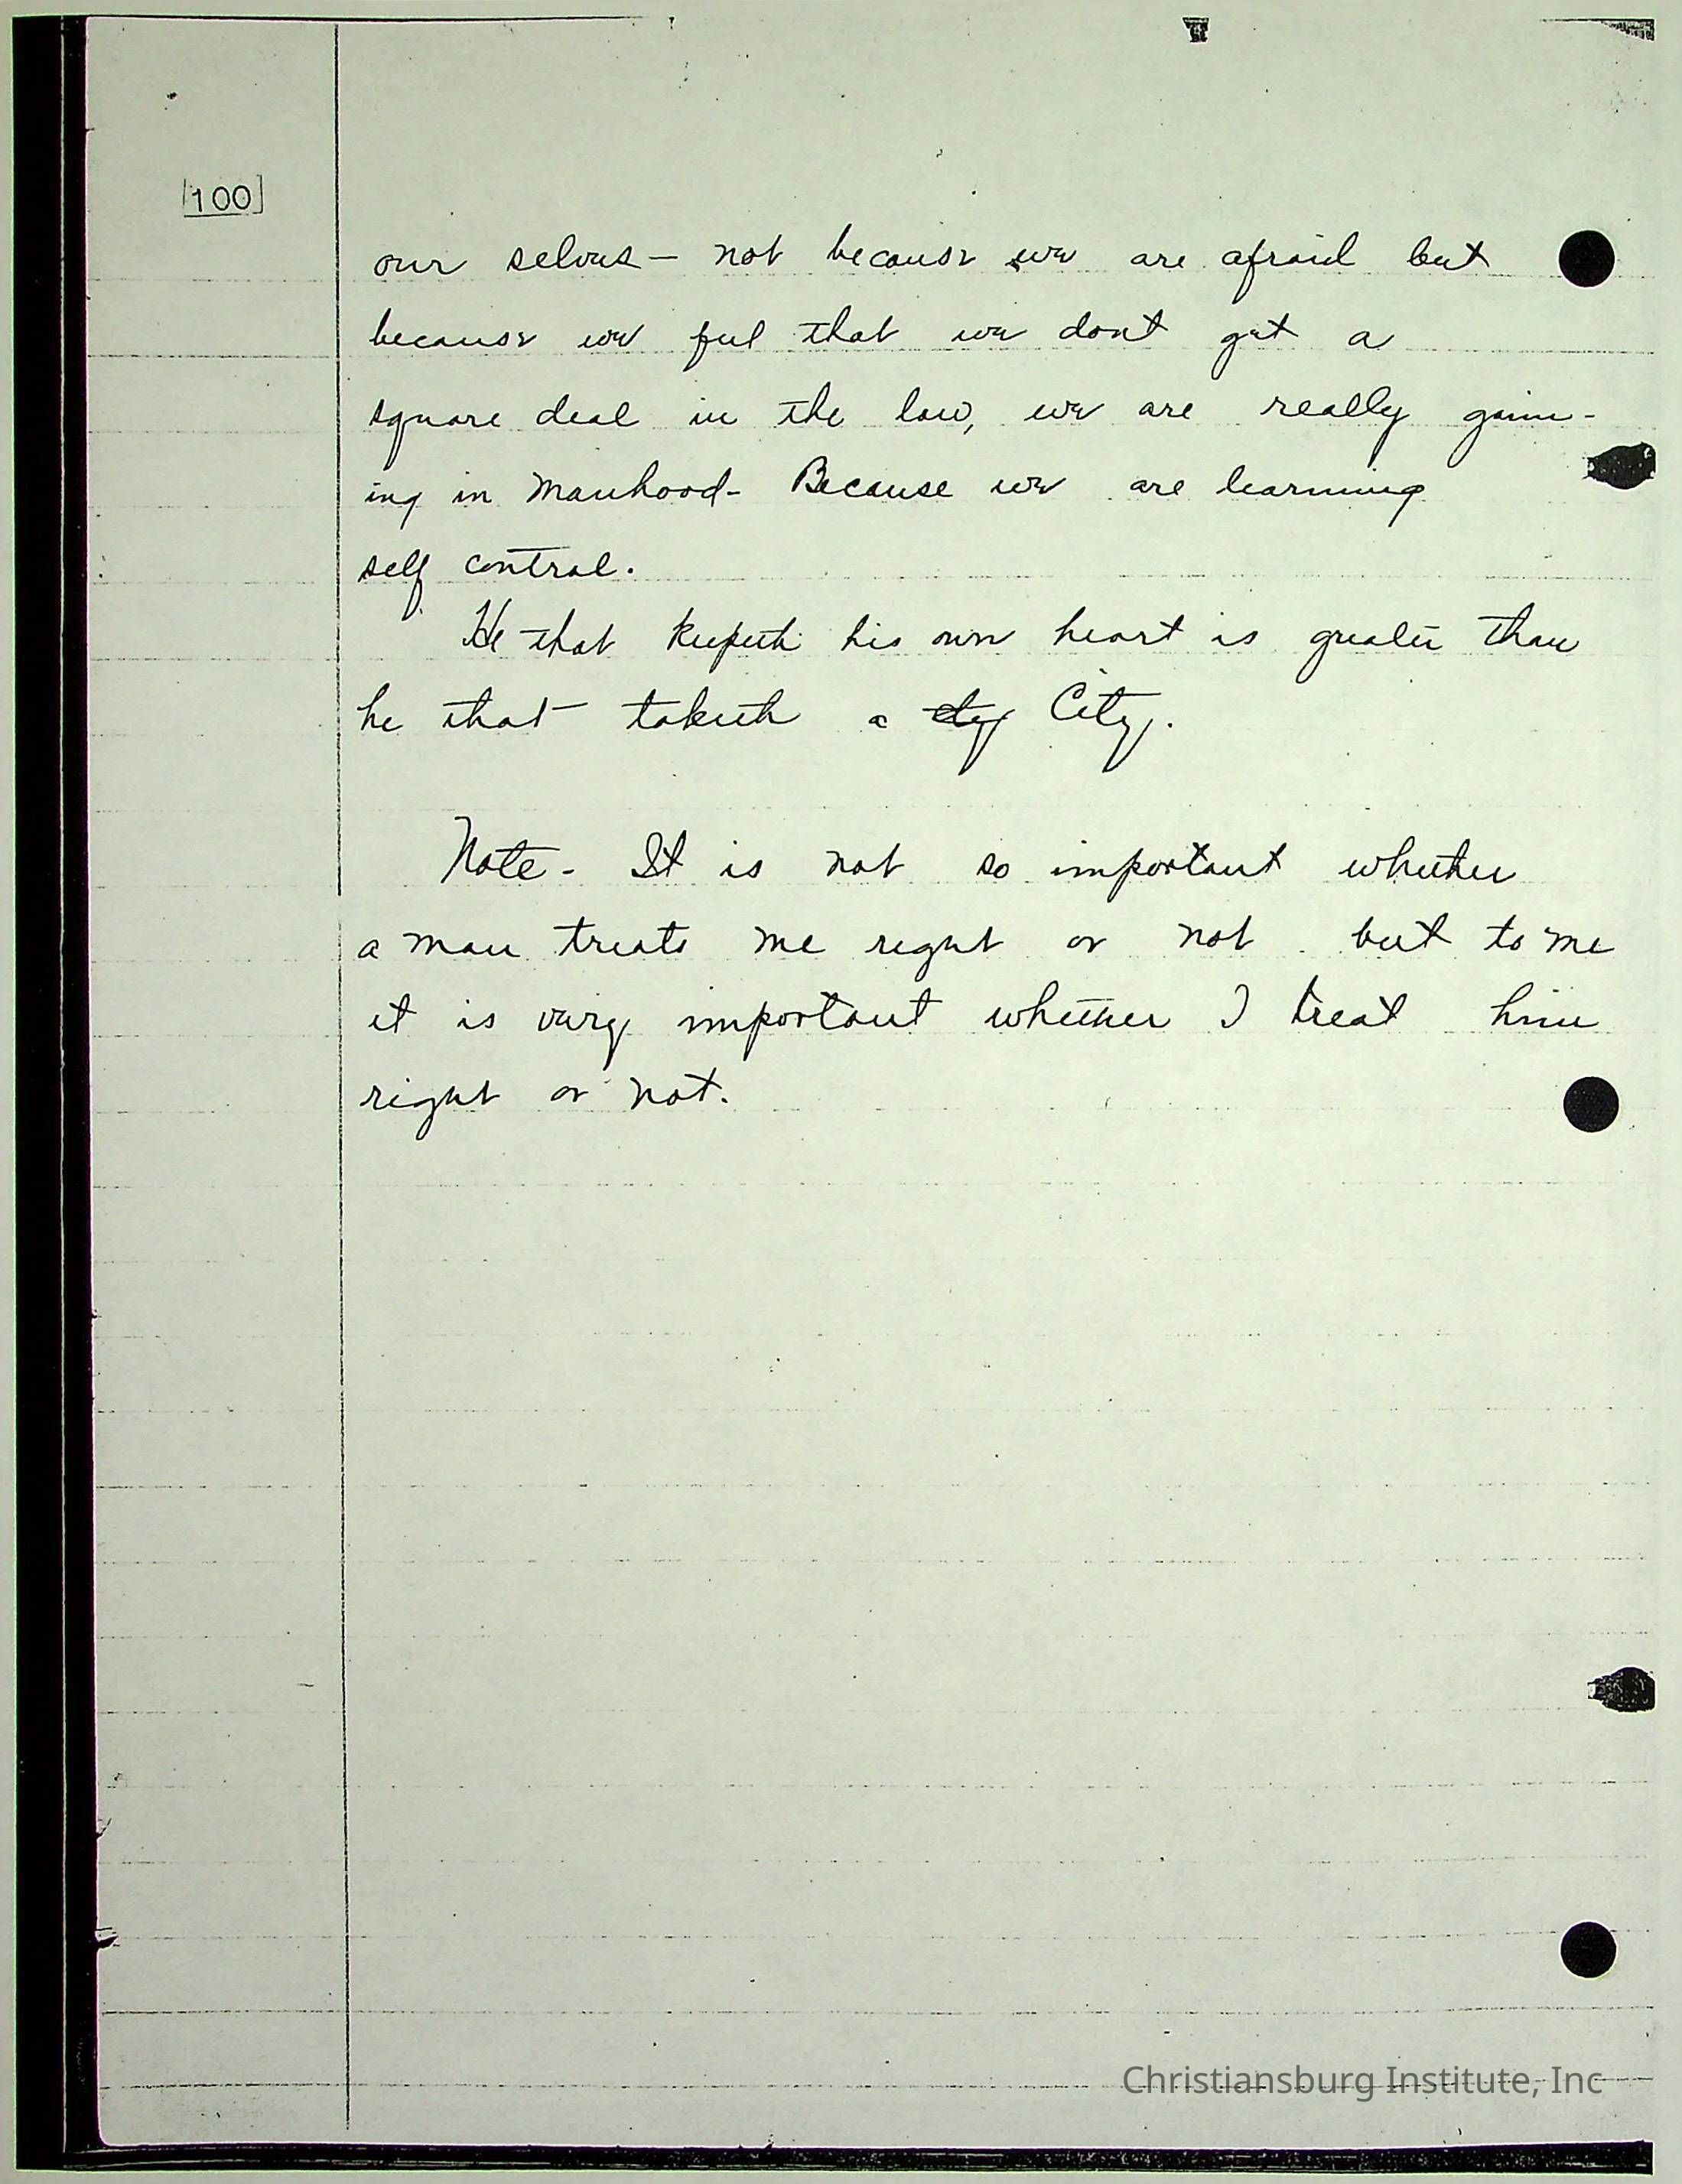 [100]
our selves — not because we are afraid but
because we feel that we dont get a
square deal in the law, we are really gain-
ing in manhood - Because we are learning
self control.
He that keepeth his own heart is greater than
he that taketh a cty City.
Note - It is not so important whether
a man treats me right or not but to me
it is very important whether I treat him
right or not.
Christiansburg Institute, Inc